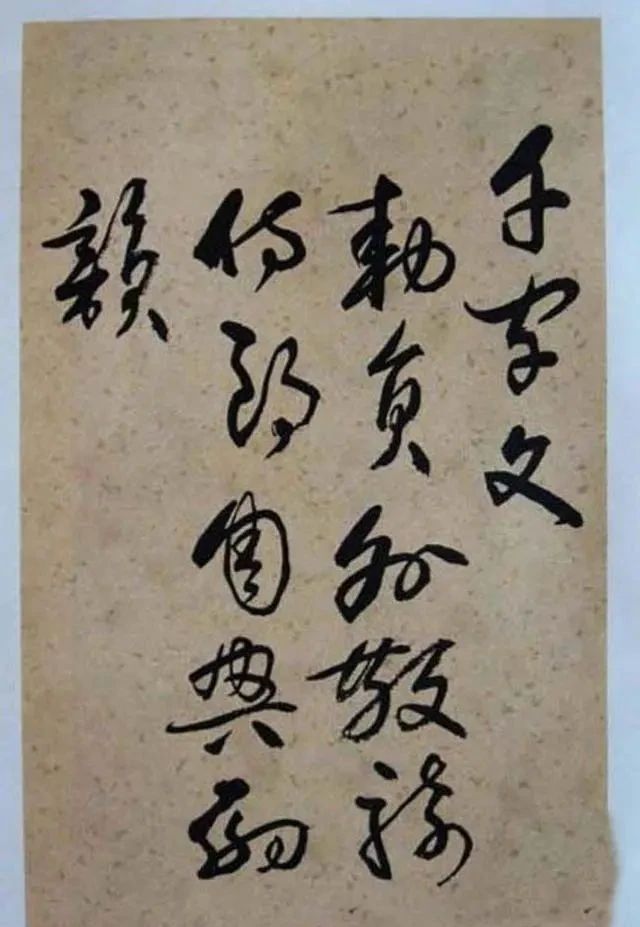 千字文
勅員外散騎
侍郎周興嗣
韻